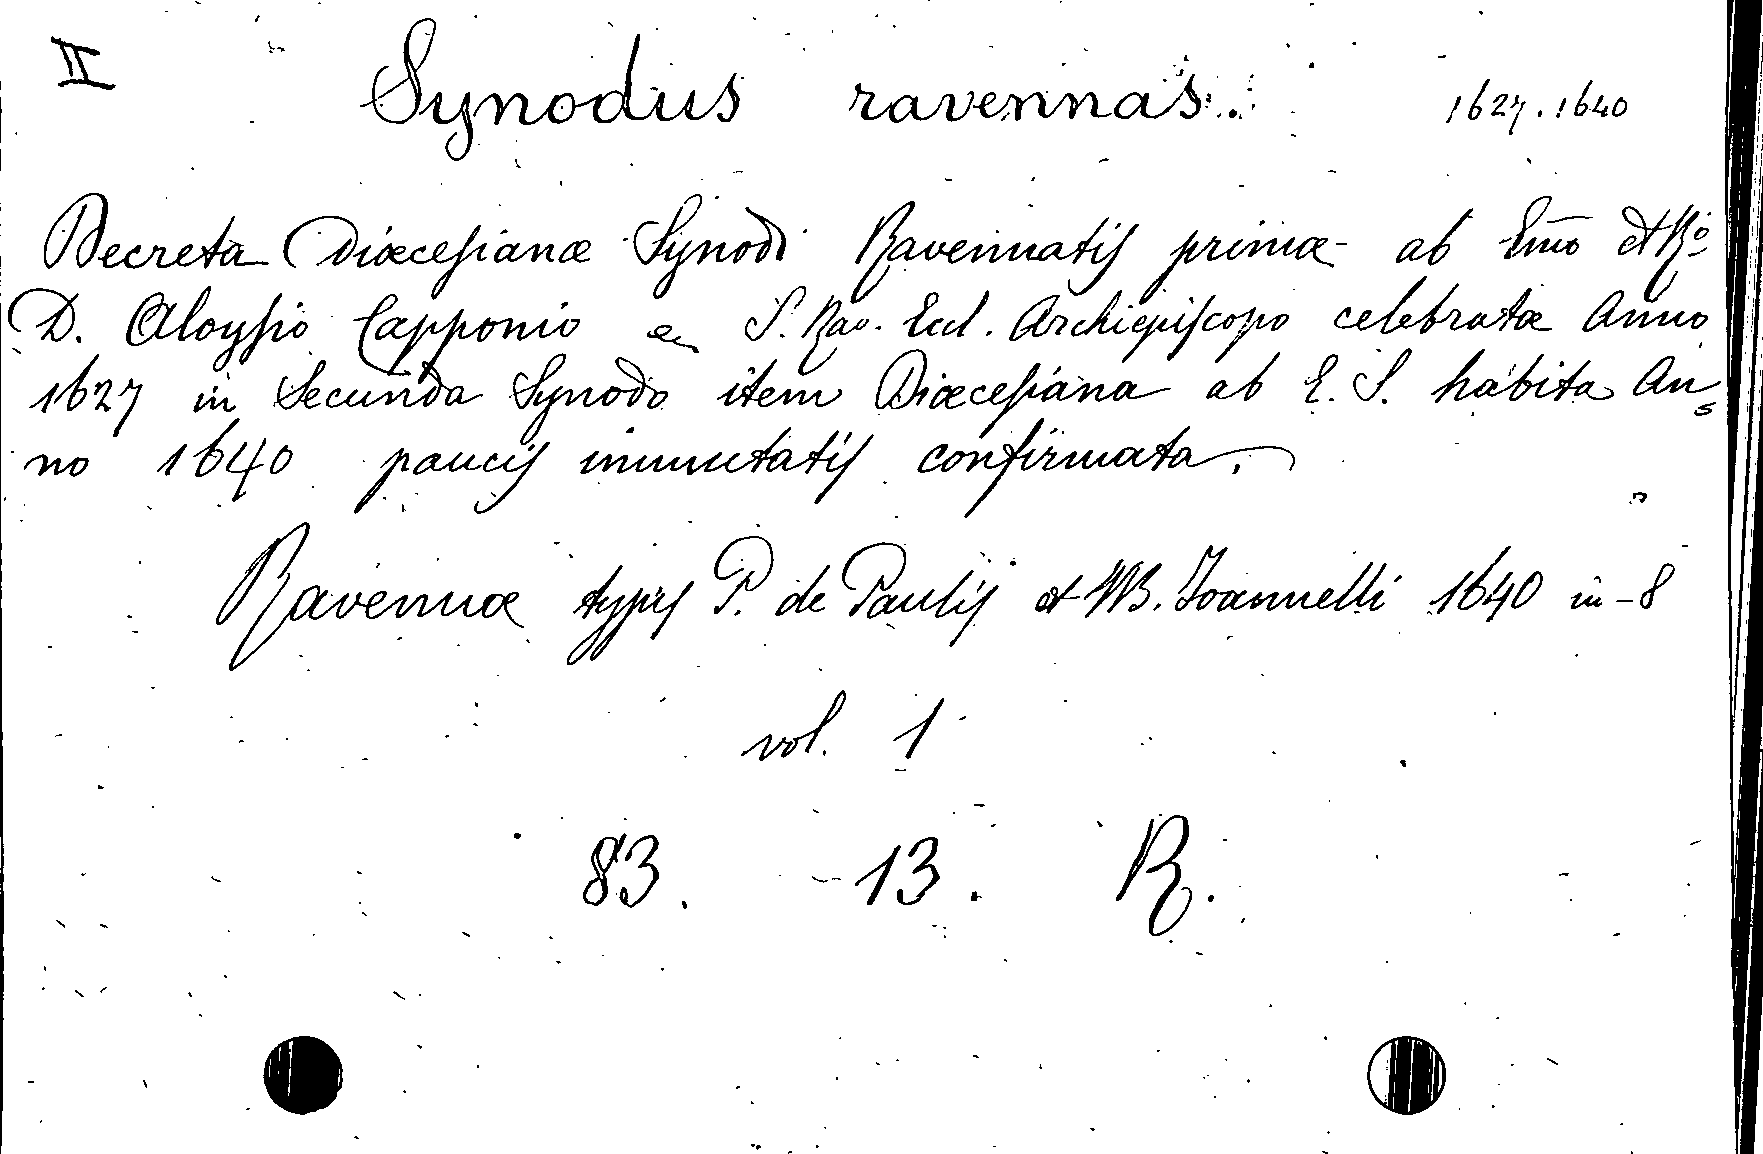 II Synodus ravennas. 1627.1640
Decreta Diœcesianæ Synodi Ravennatis primæ ab Emo et Ro
D. Aloysio Capponio S. Rav. Eccl. Archiepiscopo celebratæ Anno
1627 in Secunda Synodo item Diœcesiana ab E. S. habita An=
no 1640 paucis immutatis confirmata.
Ravennæ typis P. de Paulis et Joannelli 1640 in-8
vol. 1
83. 13. R.